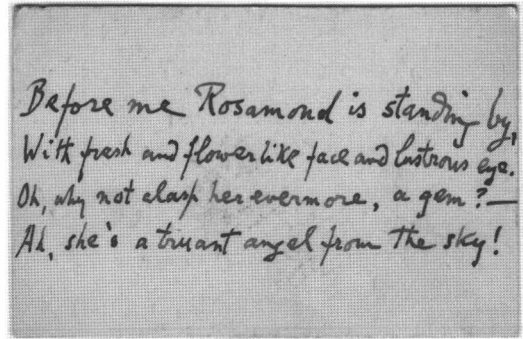 Before me Rosamond is standing by,
With fresh and flowerlike face and lustrous eye.
Oh, why not clasp her evermore, a gem?—
Ah, she's a truant angel from the sky!